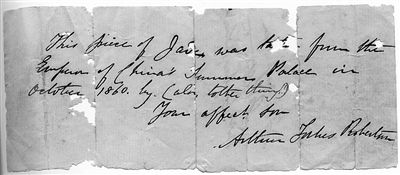 This piece of Jade was taken from the
Emperor of China's Summer Palace in
October 1860. by (also other things)
Your affect. son
Arthur Forbes Robertson